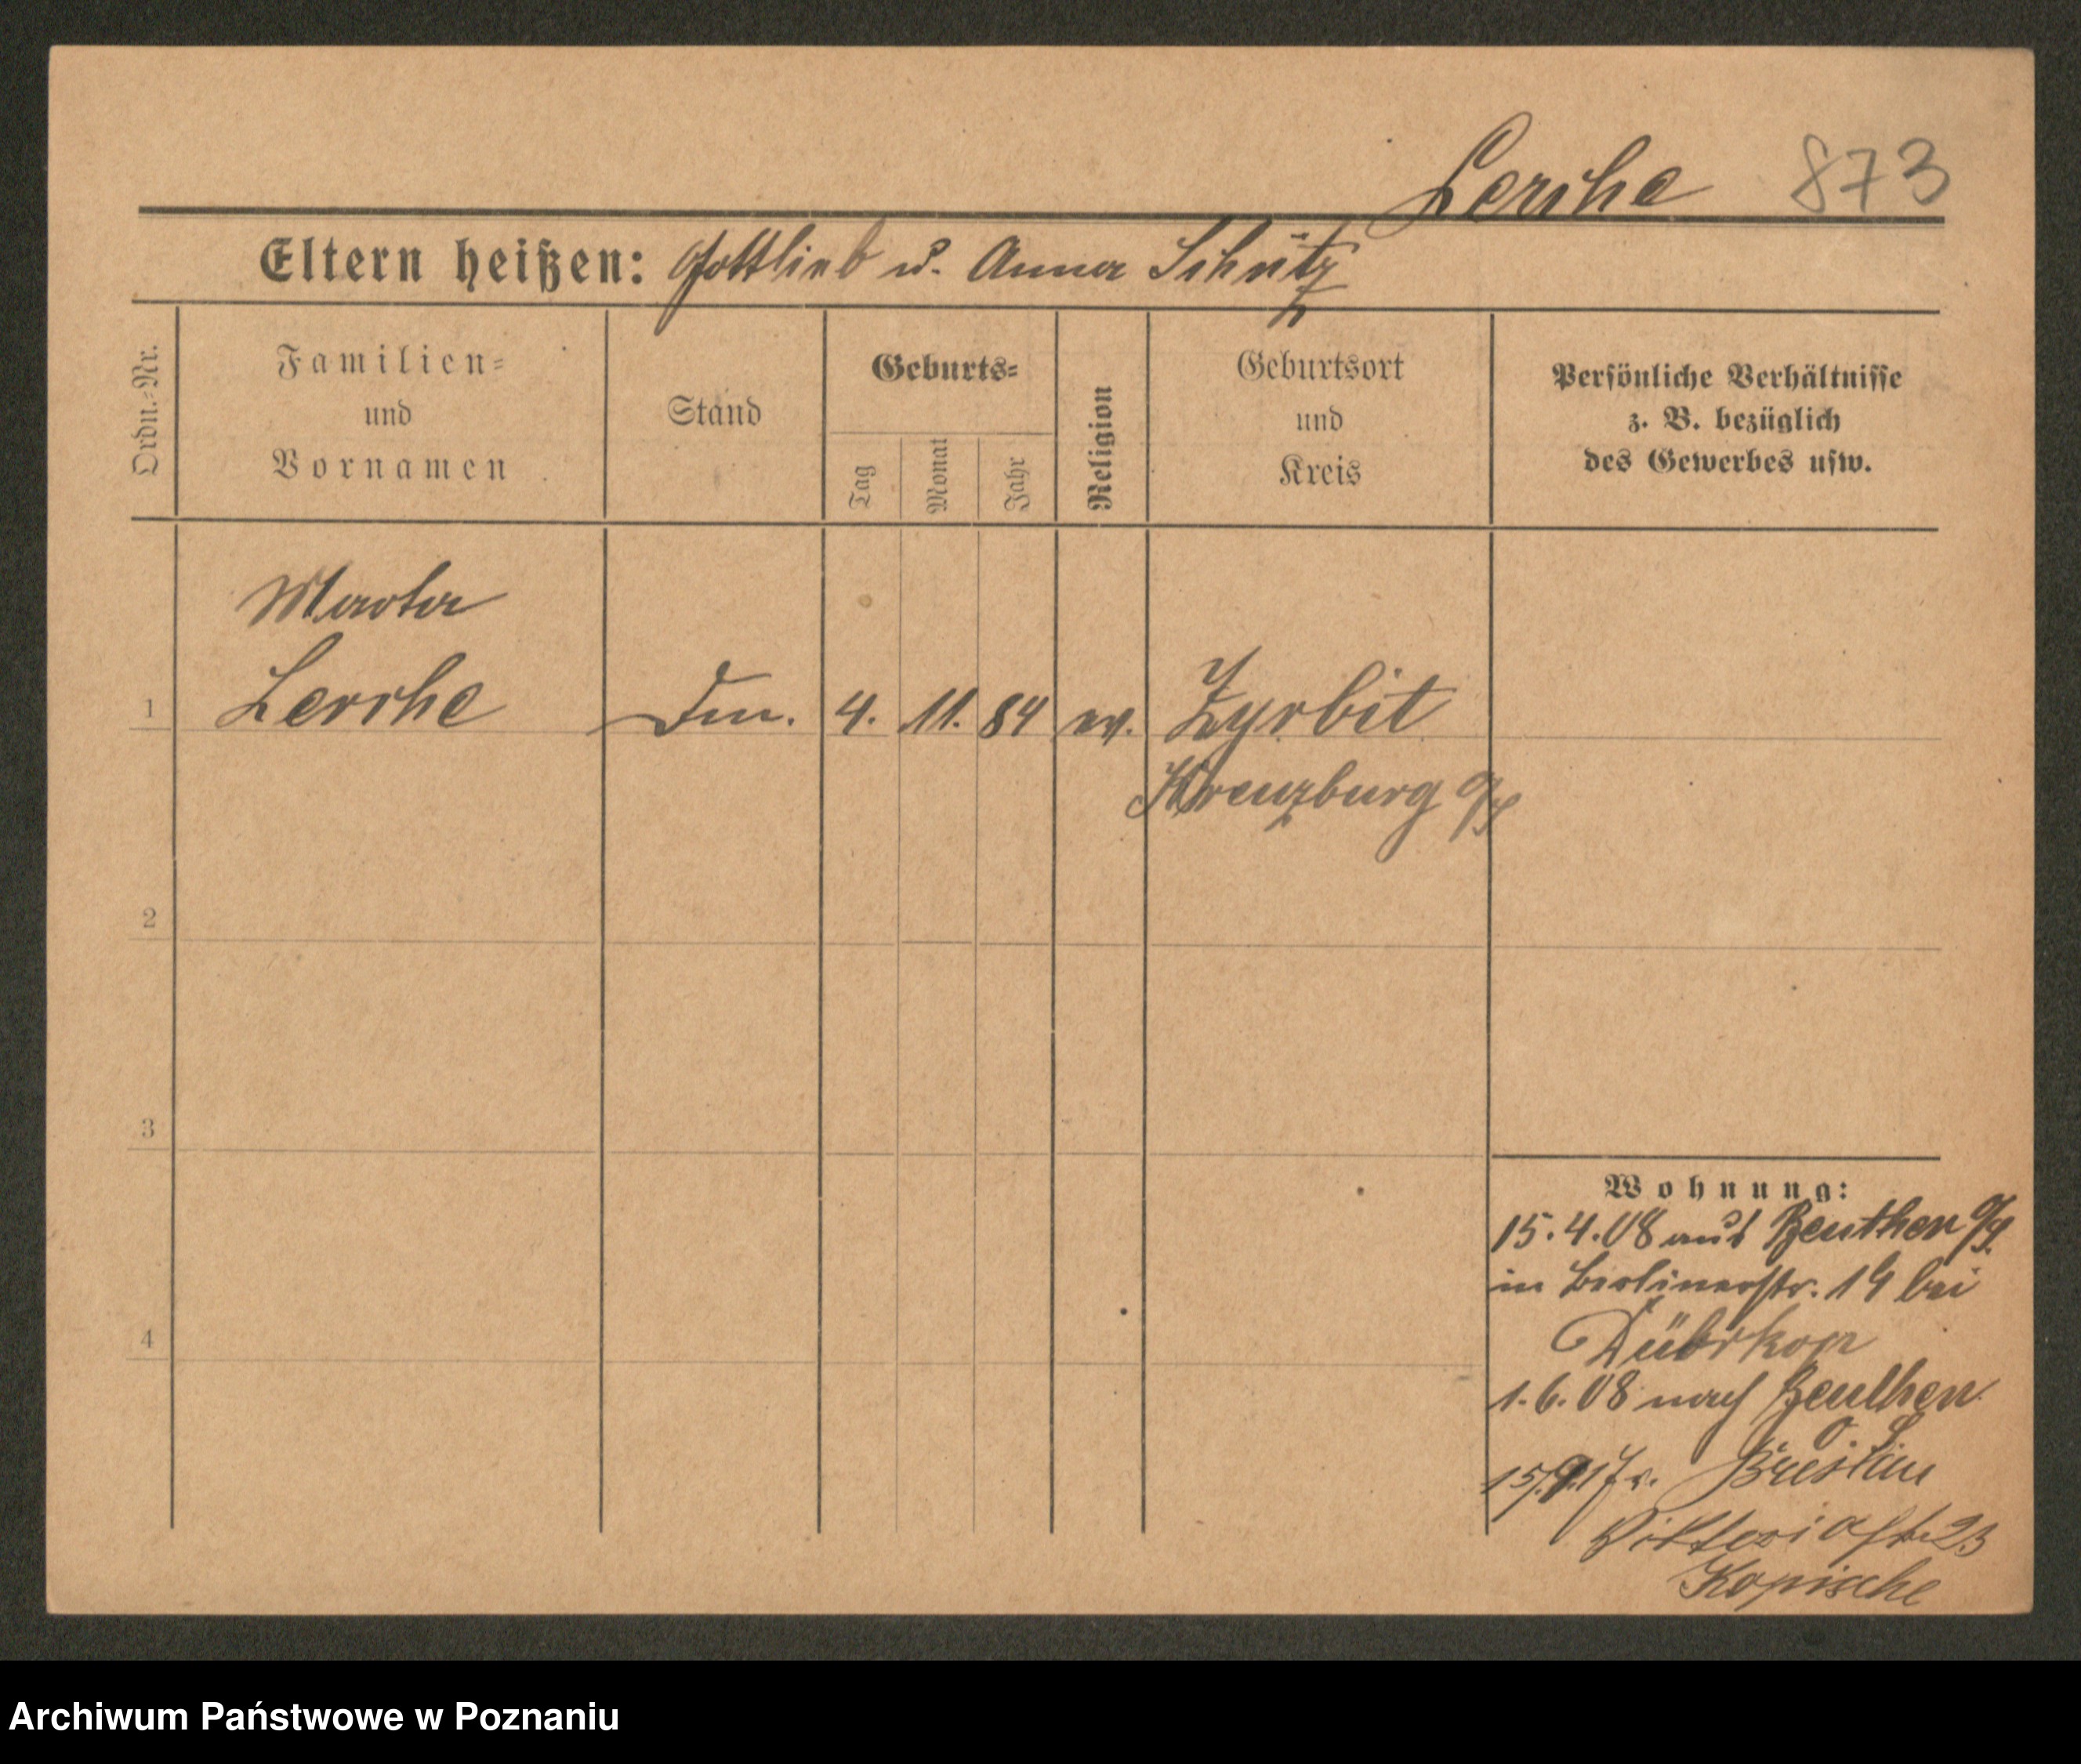 Lerche 873
Eltern heißen: Gottlieb u. Anna Schütz
Ordn.-Nr.
Familien-
und
Vornamen
Stand
Geburts-
Tag
Monat
Jahr
Religion
Geburtsort
und
Kreis
Persönliche Verhältnisse
z. B. bezüglich
des Gewerbes usw.
Marta
1 Lerche 4. 11. 84 ev. Zyrbit
Kreuzburg O/S
2
3
4
Wohnung:
15.4.08 aus Beuthen O/S.
in Berlinerstr. 19 bei
1.6.08 nach Beuthen
O. S.
Breslau
Viktoriastr 23
Kopische
Archiwum Państwowe w Poznaniu